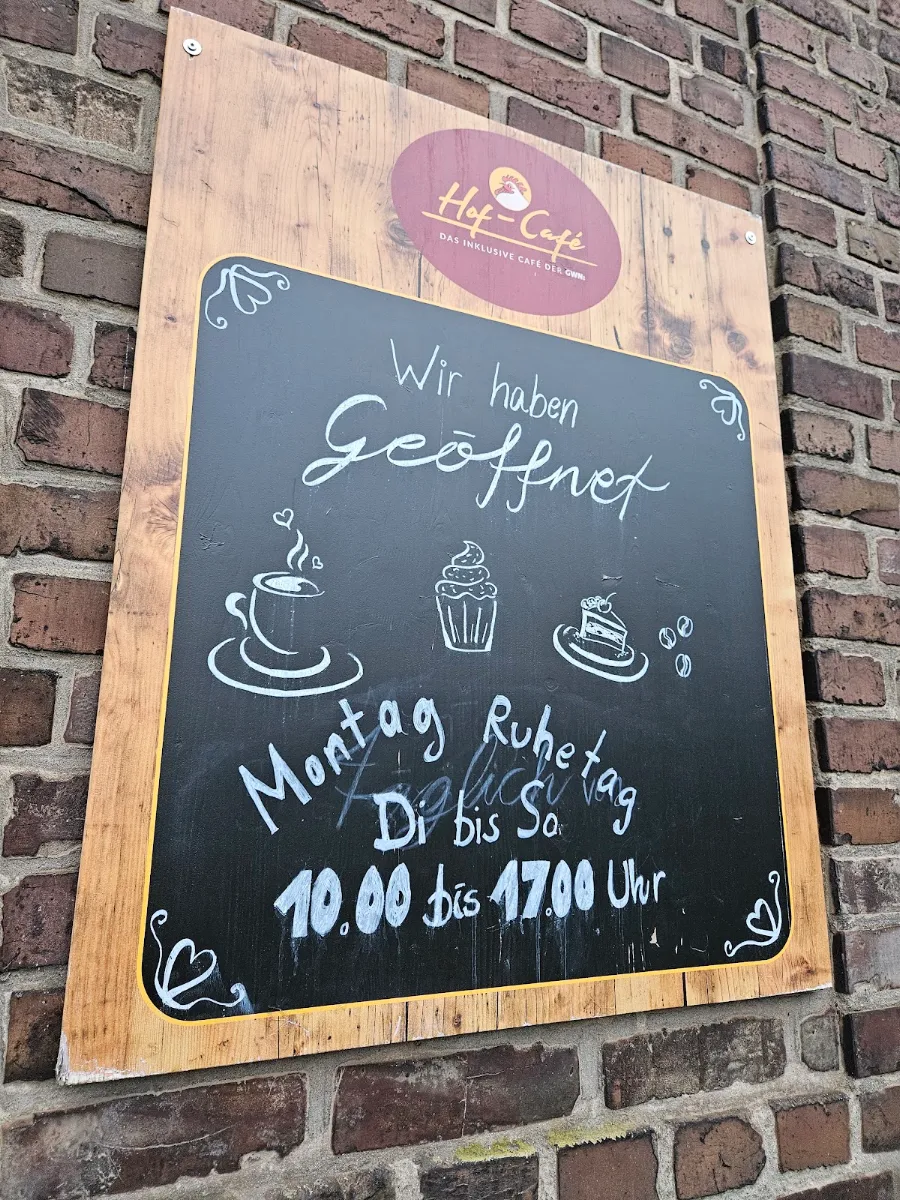 Hof-Café
DAS INKLUSIVE CAFÉ DER GWN:
Wir haben
Geöffnet
Montag Ruhetag
täglich von
Di bis So
10.00 bis 17.00 Uhr